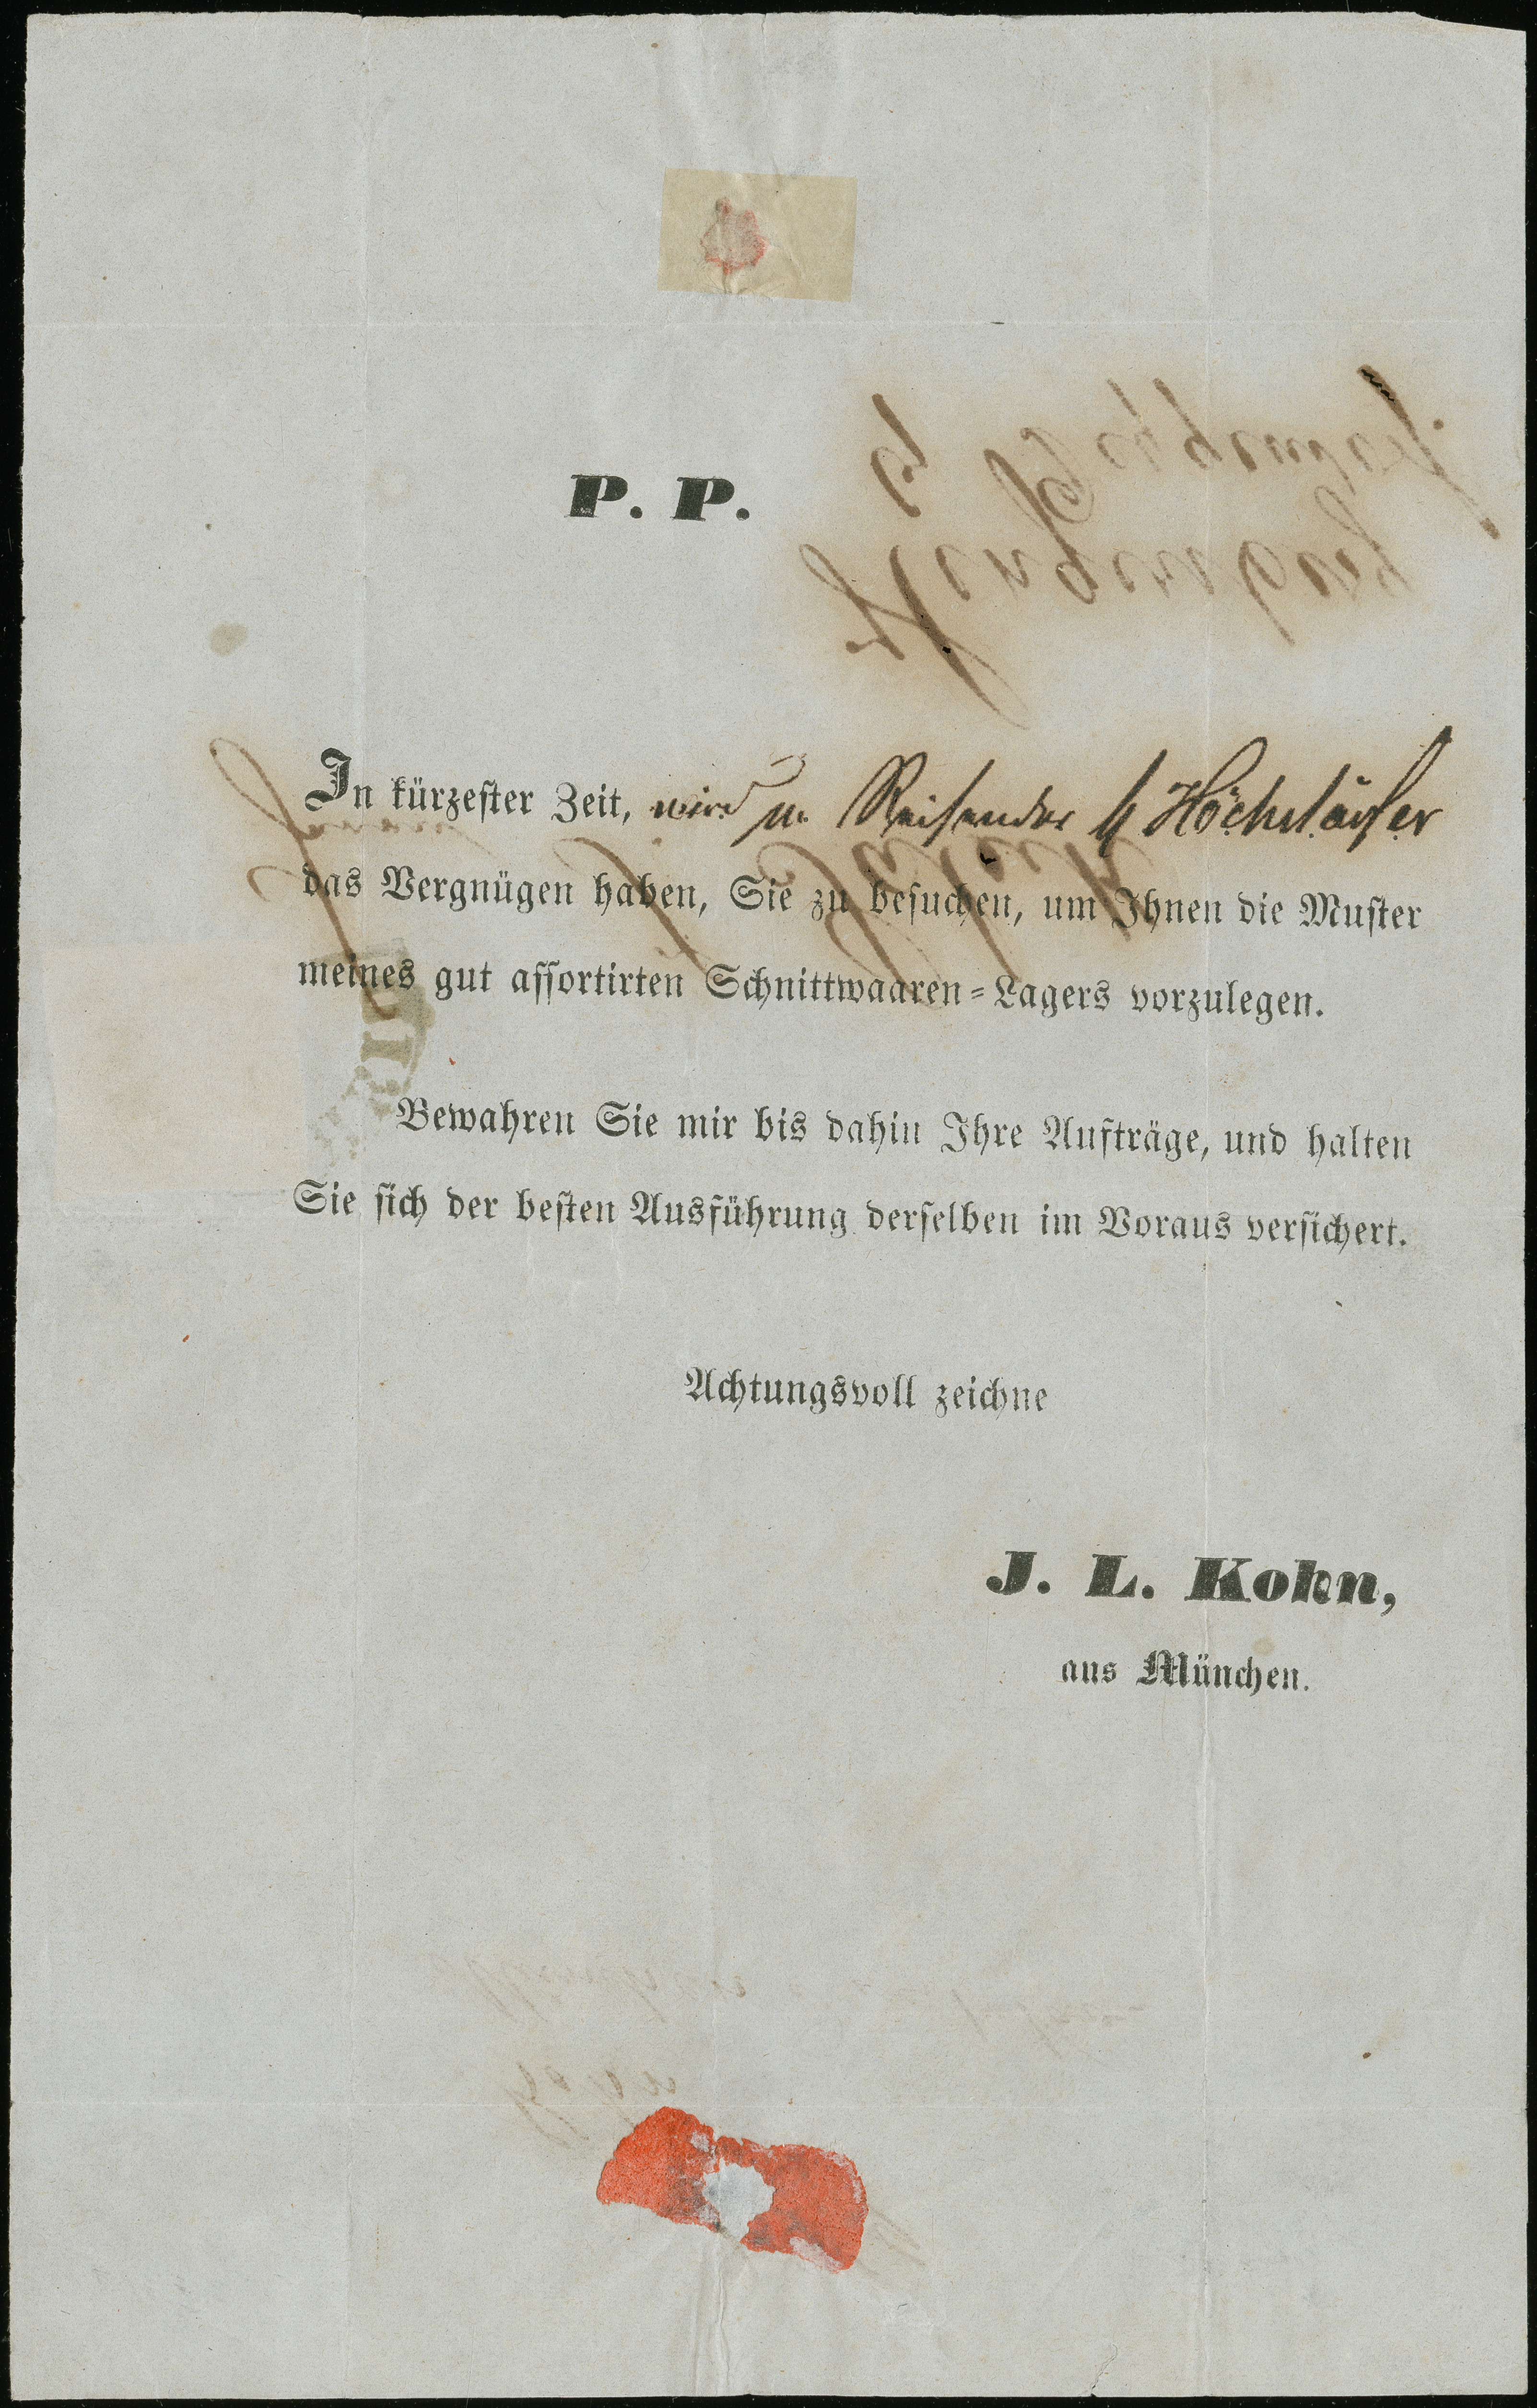 P. P.
In kürzester Zeit, wird m. Reisender H Höchstädter
das Vergnügen haben, Sie zu besuchen, um Ihnen die Muster
meines gut assortirten Schnittwaaren=Lagers vorzulegen.
Bewahren Sie mir bis dahin Ihre Aufträge, und halten
Sie sich der besten Ausführung derselben im Voraus versichert.
Achtungsvoll zeichne
J. L. Kohn,
aus München.